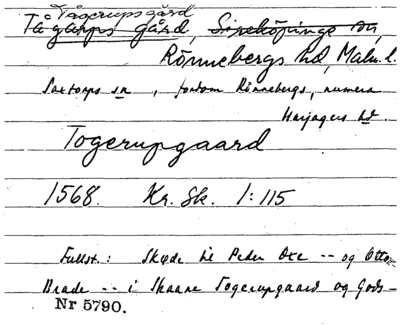 Tågerupsgård
Tågarps gård, Sireköpinge sn,
Rönnebergs hd, Malm. l.
Saxtorps sn, fordom Rönnebergs, numera
Harjagers hd.
Togerupgaard
1568. Kr. Sk. 1:115
Fullst.: Skøde til Peder Oxe -- og Otto
Brade -- i Skaane Togerupgaard og Gods -
Nr 5790.